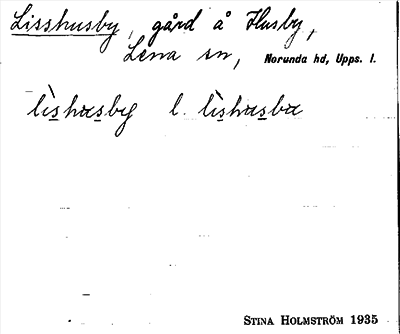 Lisshusby, gård å Husby,
Lena sn, Norunda hd, Upps. l.
lìshusby l. lìshusbu
STINA HOLMSTRÖM 1935